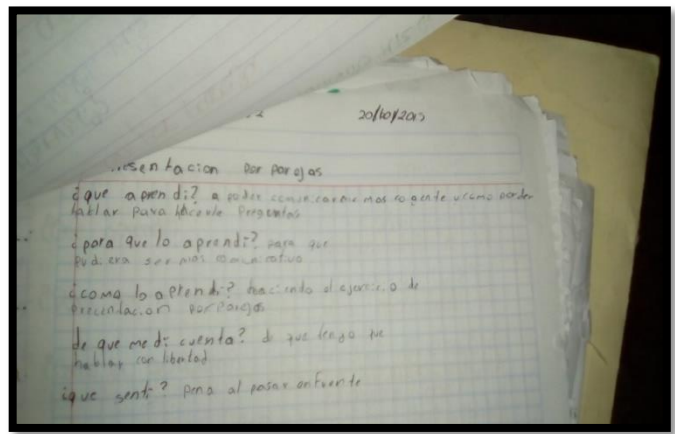 20/10/2013
esentacion por parejas
¿que aprendi? a poder comunicarme mas co gente y como poder
hablar para hacerle preguntas
¿para que lo aprendi? para que
pudiera ser mas comunicativo
¿como lo aprendi? haciendo el ejercicio de
precentacion por parejas
de que me di cuenta? de que tengo que
hablar con libertad
¿que senti? pena al pasar enfrente